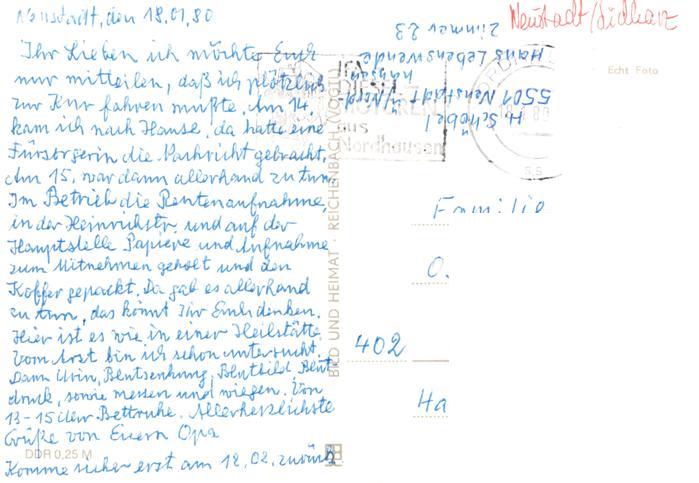 Neustadt, den 18.01.80
Ihr Lieben ich möchte Euch
nur mitteilen, daß ich plötzlich
zur Kur fahren mußte. Am 14.
kam ich nach Hause, da hatte eine
Fürsorgerin die Nachricht gebracht.
Am 15. war dann allerhand zu tun.
Im Betrieb die Rentenaufnahme,
in der Heinrichstr. und auf der
Hauptstelle Papiere und Aufnahme
zum Mitnehmen geholt und den
Koffer gepackt. Da gab es allerhand
zu tun, das könnt Ihr Euch denken.
Hier ist es wie in einer Heilstätte.
Vom Arzt bin ich schon untersucht.
Dann Urin, Blutsenkung, Blutbild, Blut
druck, sowie messen und wiegen. Von
13-15 Uhr Bettruhe. Allerherzlichste
Grüße von Euern Opa
Komme sicher erst am 12.02. zurück
DDR 0,25 M
BILD UND HEIMAT · REICHENBACH (VOGTL)
Neustadt/Südharz
Echt Foto
H. Schöbel
5501 Neustadt ü/Nord
hausen
Haus Lebenswende
Zimmer 23
IFA
DIESEL
MOTOREN
aus
Nordhausen
Familie
O.
402
Ha